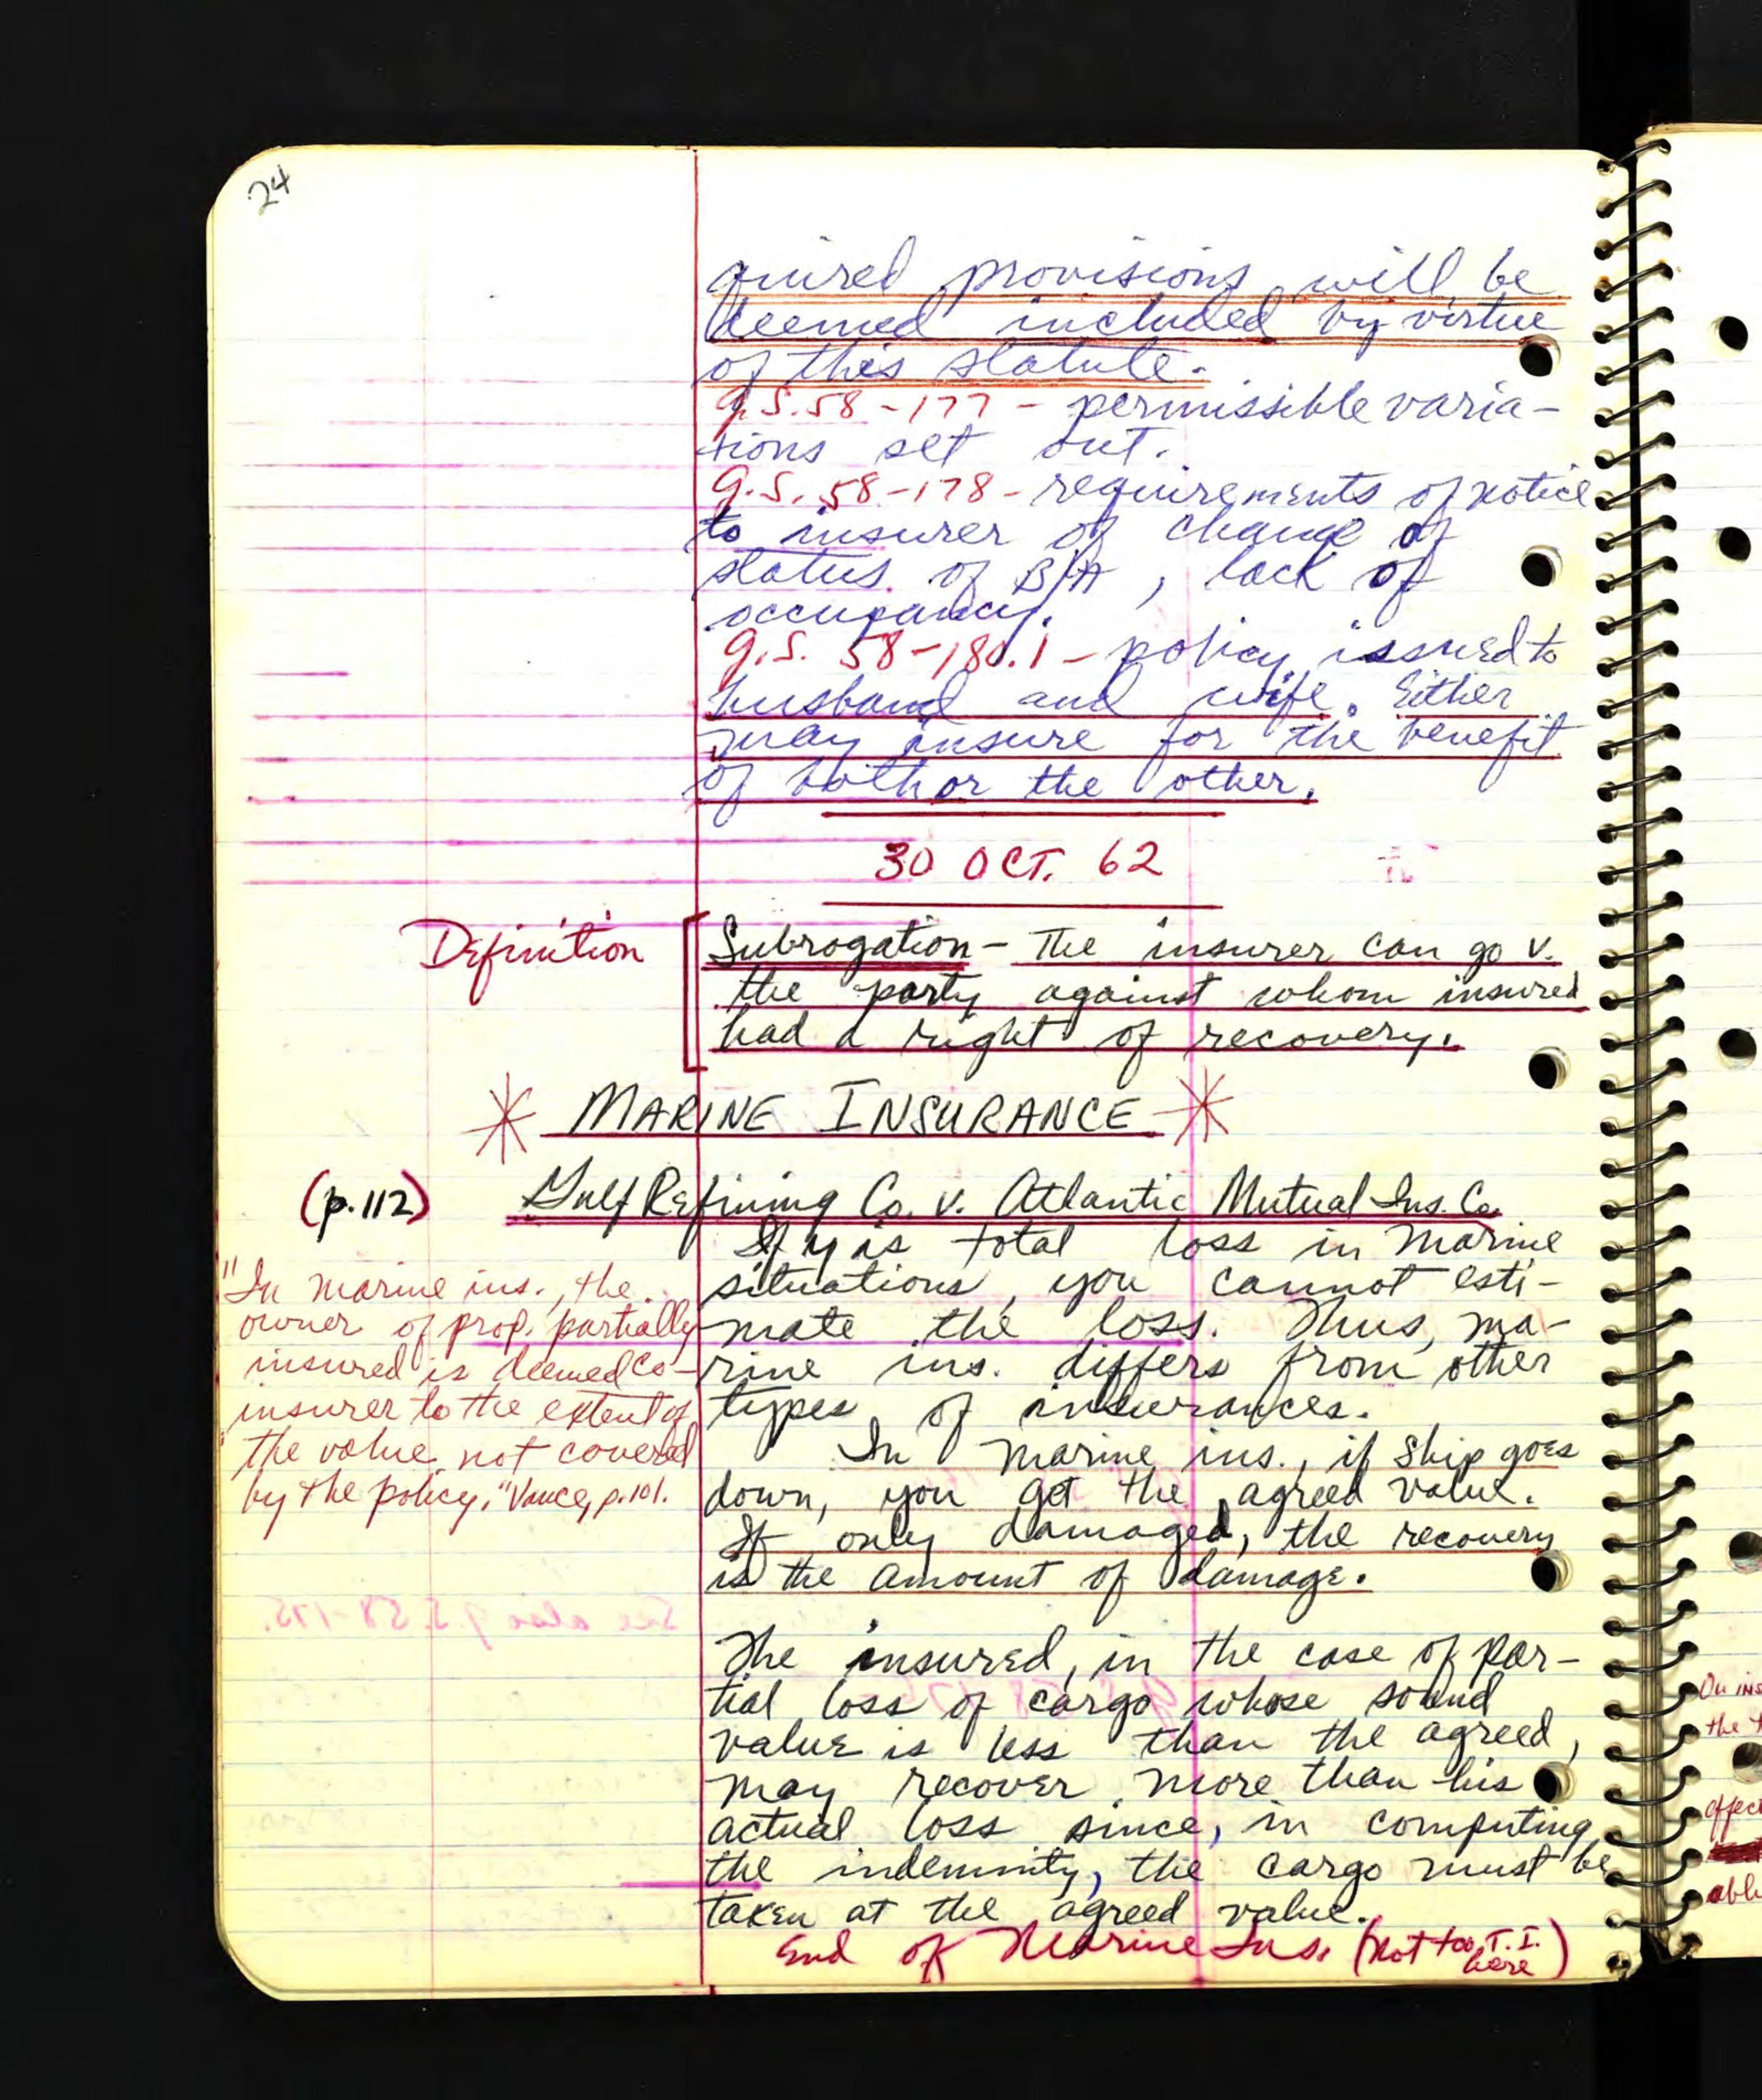 24
quired provisions will be
deemed included by virtue
of this statute.
G.S. 58-177 - permissible varia-
tions set out.
G.S. 58-178 - requirements of notice
to insurer of change of
status of B/A, lack of
occupancy.
G.S. 58-180.1 - policy issued to
husband and wife. Either
may insure for the benefit
of both or the other.
30 OCT. 62
Definition
Subrogation - The insurer can go v.
the party against whom insured
had a right of recovery.
MARINE INSURANCE
(p.112) Gulf Refining Co. v. Atlantic Mutual Ins. Co.
If y is total loss in marine
situations, you cannot esti-
mate the loss. Thus, ma-
rine ins. differs from other
types of insurances.
In marine ins., if ship goes
down, you get the agreed value.
If only damaged, the recovery
is the amount of damage.
"In marine ins., the
owner of prop. partially
insured is deemed co-
insurer to the extent of
the value not covered
by the policy." Vance, p.101.
The insured, in the case of par-
tial loss of cargo whose sound
value is less than the agreed,
may recover more than his
actual loss since, in computing
the indemnity, the cargo must be
taken at the agreed value.
End of Marine Ins. (not too T.I.
here)
On ins
the
effect
able